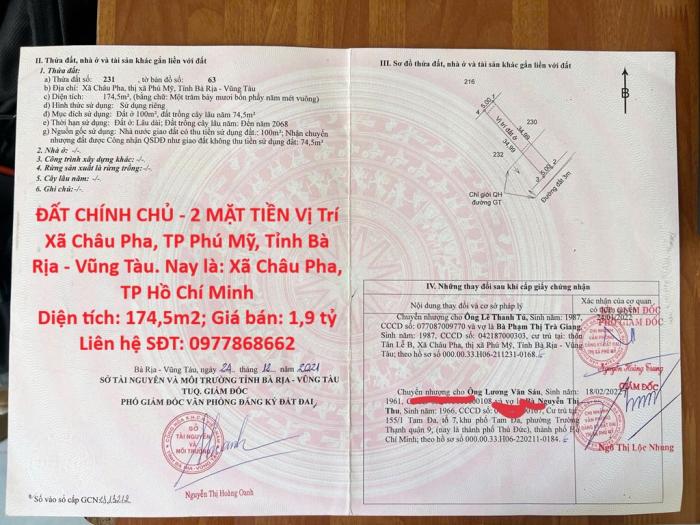 II. Thửa đất, nhà ở và tài sản khác gắn liền với đất
1. Thửa đất:
a) Thửa đất số: 231 , tờ bản đồ số: 63
b) Địa chỉ: Xã Châu Pha, thị xã Phú Mỹ, Tỉnh Bà Rịa - Vũng Tàu
c) Diện tích: 174,5m², (bằng chữ: Một trăm bảy mươi bốn phẩy năm mét vuông)
d) Hình thức sử dụng: Sử dụng riêng
đ) Mục đích sử dụng: Đất ở 100m², đất trồng cây lâu năm 74,5m²
e) Thời hạn sử dụng: Đất ở: Lâu dài; Đất trồng cây lâu năm: Đến năm 2068
g) Nguồn gốc sử dụng: Nhà nước giao đất có thu tiền sử dụng đất: 100m²; Nhận chuyển
nhượng đất được Công nhận QSDĐ như giao đất không thu tiền sử dụng đất: 74,5m²
2. Nhà ở: -/-
3. Công trình xây dựng khác: -/-
4. Rừng sản xuất là rừng trồng: -/-
5. Cây lâu năm: -/-
6. Ghi chú: -/-
ĐẤT CHÍNH CHỦ - 2 MẶT TIỀN Vị Trí
Xã Châu Pha, TP Phú Mỹ, Tỉnh Bà
Rịa - Vũng Tàu. Nay là: Xã Châu Pha,
TP Hồ Chí Minh
Diện tích: 174,5m2; Giá bán: 1,9 tỷ
Liên hệ SĐT: 0977868662
Bà Rịa - Vũng Tàu, ngày 24 tháng 12 năm 2021
SỞ TÀI NGUYÊN VÀ MÔI TRƯỜNG TỈNH BÀ RỊA - VŨNG TÀU
TUQ. GIÁM ĐỐC
PHÓ GIÁM ĐỐC VĂN PHÒNG ĐĂNG KÝ ĐẤT ĐAI
SỞ
TÀI NGUYÊN
VÀ
MÔI TRƯỜNG
Nguyễn Thị Hoàng Oanh
Số vào sổ cấp GCN:
III. Sơ đồ thửa đất, nhà ở và tài sản khác gắn liền với đất
216
B
5.00
Vị trí đất ở
230
34.89
34.99
232
5.00
Chỉ giới QH
đường GT
Đường đất 3m
IV. Những thay đổi sau khi cấp giấy chứng nhận
Nội dung thay đổi và cơ sở pháp lý
Xác nhận của cơ quan
có thẩm quyền
Chuyển nhượng cho Ông Lê Thanh Tú, Sinh năm: 1987,
CCCD số: 077087009770 và vợ là Bà Phạm Thị Trà Giang,
Sinh năm: 1987, CCCD số: 042187000303, cư trú tại: thôn
Tân Lễ B, Xã Châu Pha, thị xã Phú Mỹ, Tỉnh Bà Rịa - Vũng
Tàu; theo hồ sơ số 000.00.33.H06-211231-0168.
PHÓ GIÁM ĐỐC
Nguyễn Hoàng Giang
Chuyển nhượng cho Ông Lương Văn Sáu, Sinh năm:
1961, và vợ là Bà Nguyễn Thị
Thu, Sinh năm: 1966, CCCD số: Cư trú tại
155/1 Tam Đa, tổ 7, khu phố Tam Đa, phường Trường
Thạnh quận 9, (nay là thành phố Thủ Đức), thành phố Hồ
Chí Minh; theo hồ sơ số 000.00.33.H06-220211-0184.
18/02/2022
GIÁM ĐỐC
Ngô Thị Lộc Nhung